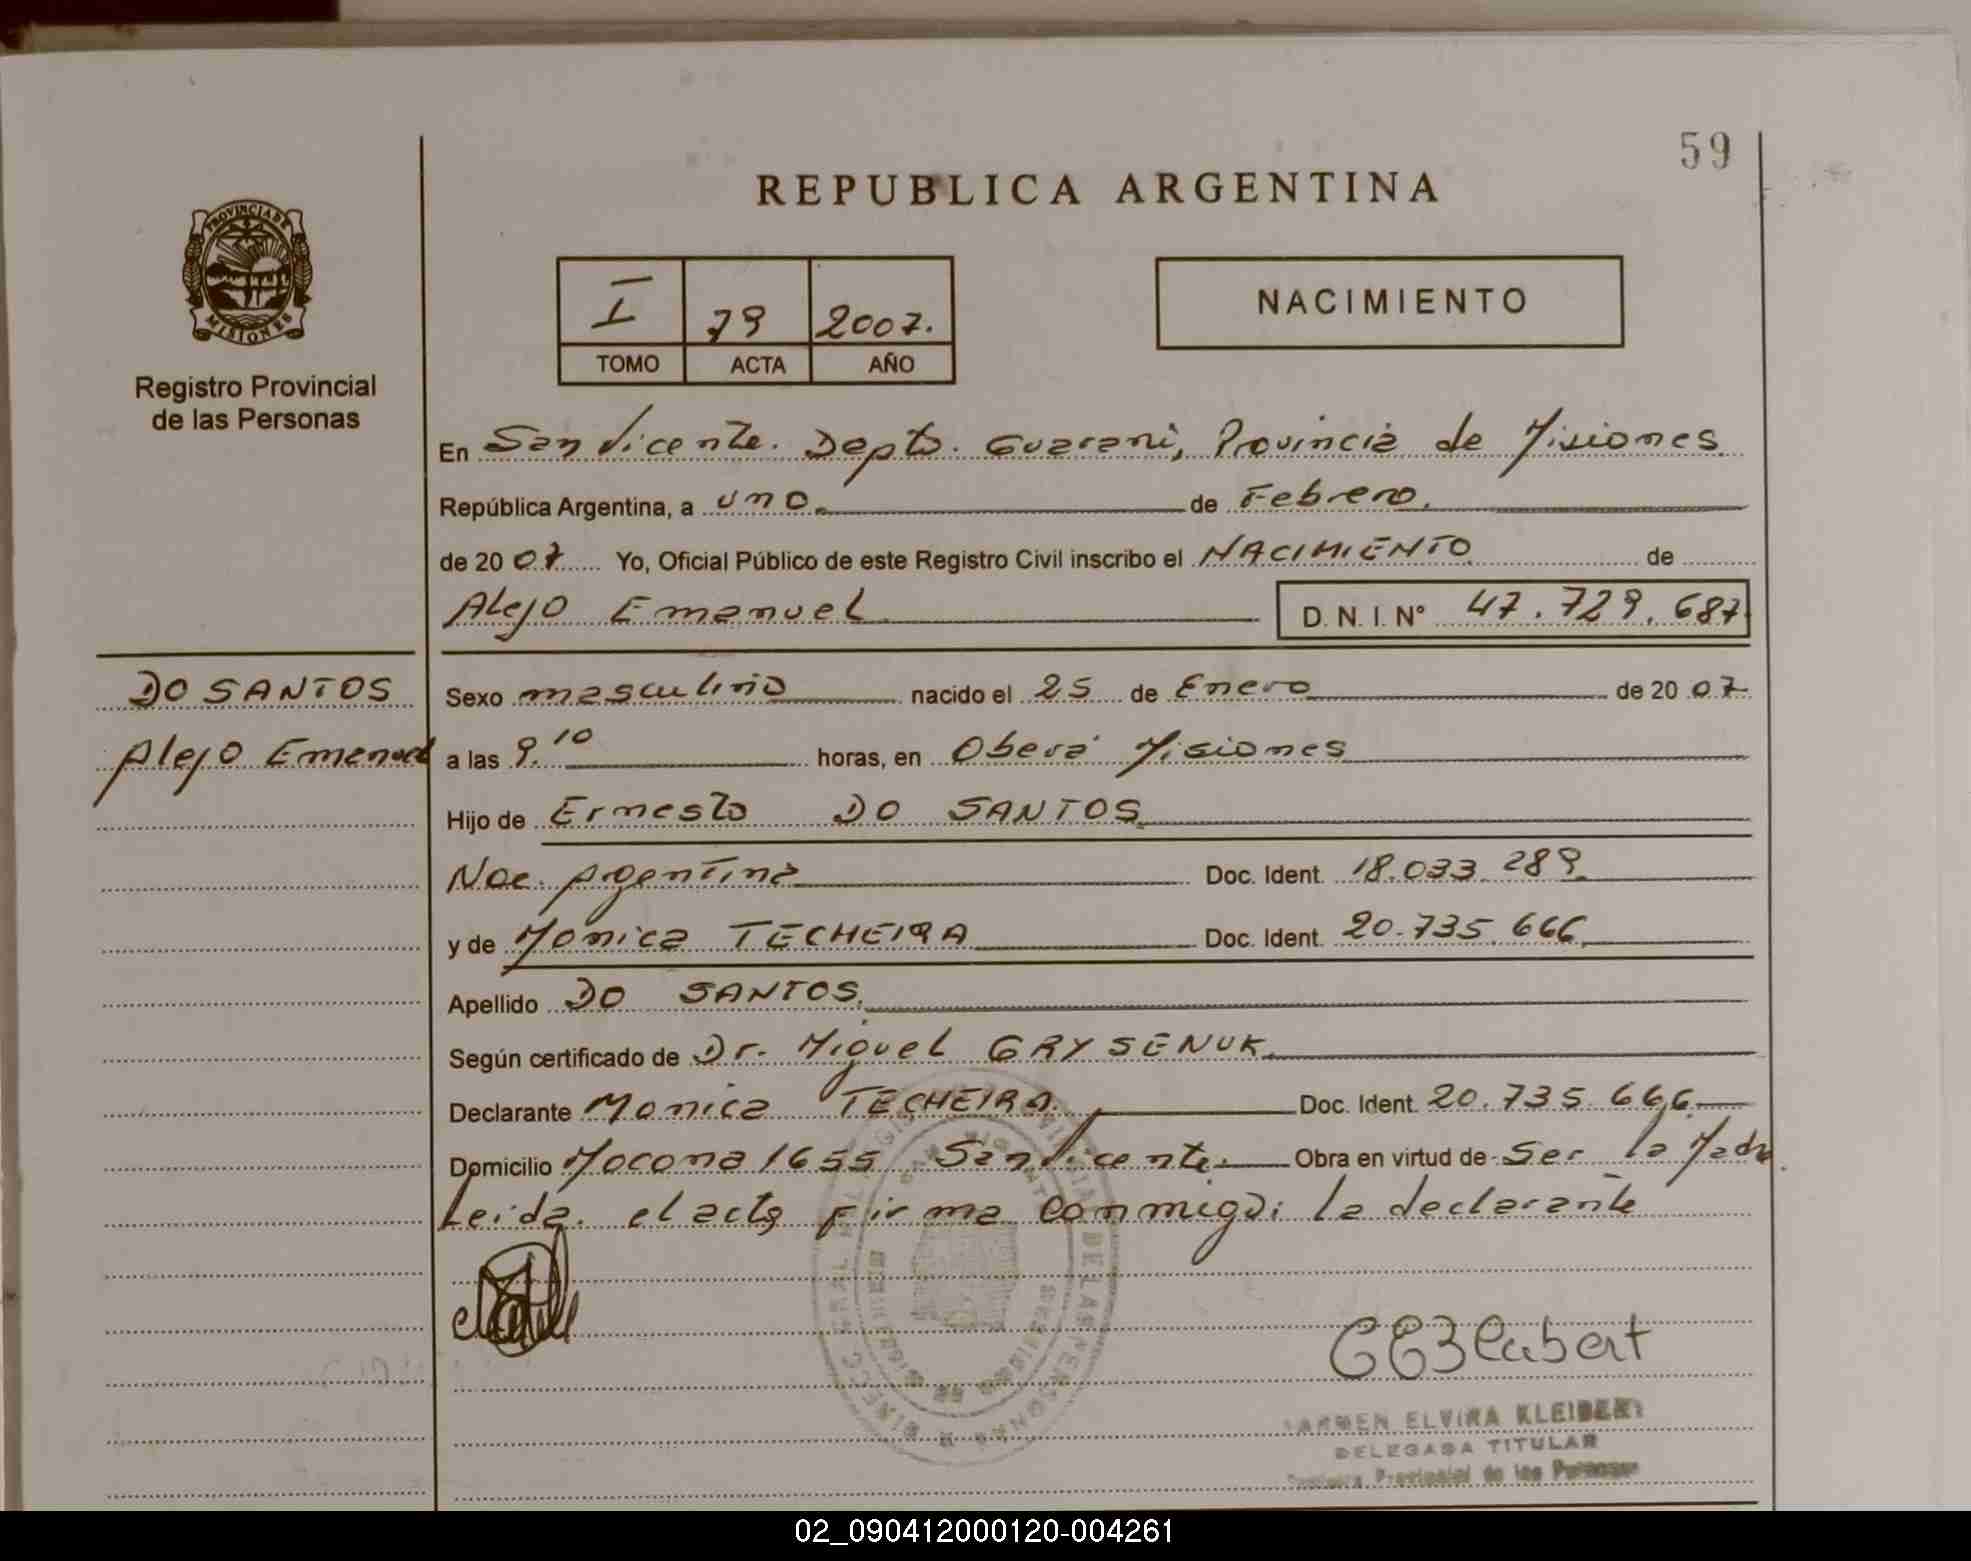 59
REPUBLICA ARGENTINA
PROVINCIA DE
MISIONES
Registro Provincial
de las Personas
I 79 2007.
TOMO ACTA AÑO
NACIMIENTO
En San Vicente. Depto. Guarani, Provincia de Misiones
República Argentina, a uno. de Febrero.
de 20 07 Yo, Oficial Público de este Registro Civil inscribo el NACIMIENTO de
Alejo Emanuel D. N. I. N° 47.729.687
DO SANTOS
Alejo Emanuel
Sexo masculino nacido el 25 de Enero de 20 07
a las 9.10 horas, en Oberá Misiones
Hijo de Ernesto DO SANTOS
Nac. Argentina Doc. Ident. 18.033.289
y de Monica TECHEIRA Doc. Ident. 20.735.666
Apellido DO SANTOS.
Según certificado de Dr. Miguel GRYSENUK.
Declarante Monica TECHEIRA. Doc. Ident. 20.735.666.
Domicilio Mocona 1655 San Vicente. Obra en virtud de Ser la Madre
Leida. el acta firma conmigo: la declarante
CARMEN ELVIRA KLEIBERT
DELEGADA TITULAR
Provincial de las Personas
02_090412000120-004261